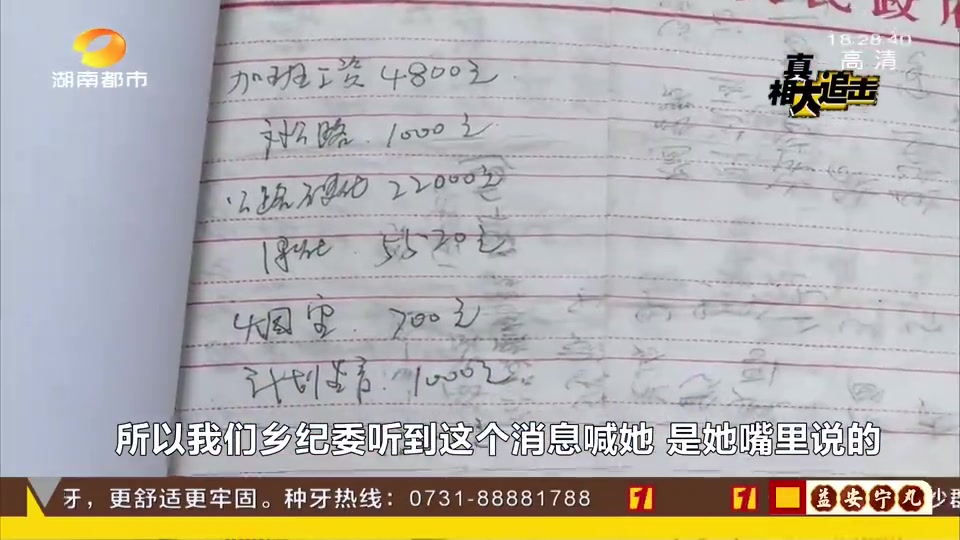 民政府
18:28:40
高清
湖南都市
真相大追击
加班工资 4800元
村公路 1000元
公路硬化 22000元
绿化 5520元
大图室 700元
计划生育 1000元
所以我们乡纪委听到这个消息喊她 是她嘴里说的
牙，更舒适更牢固。种牙热线：0731-88881788
益安宁丸